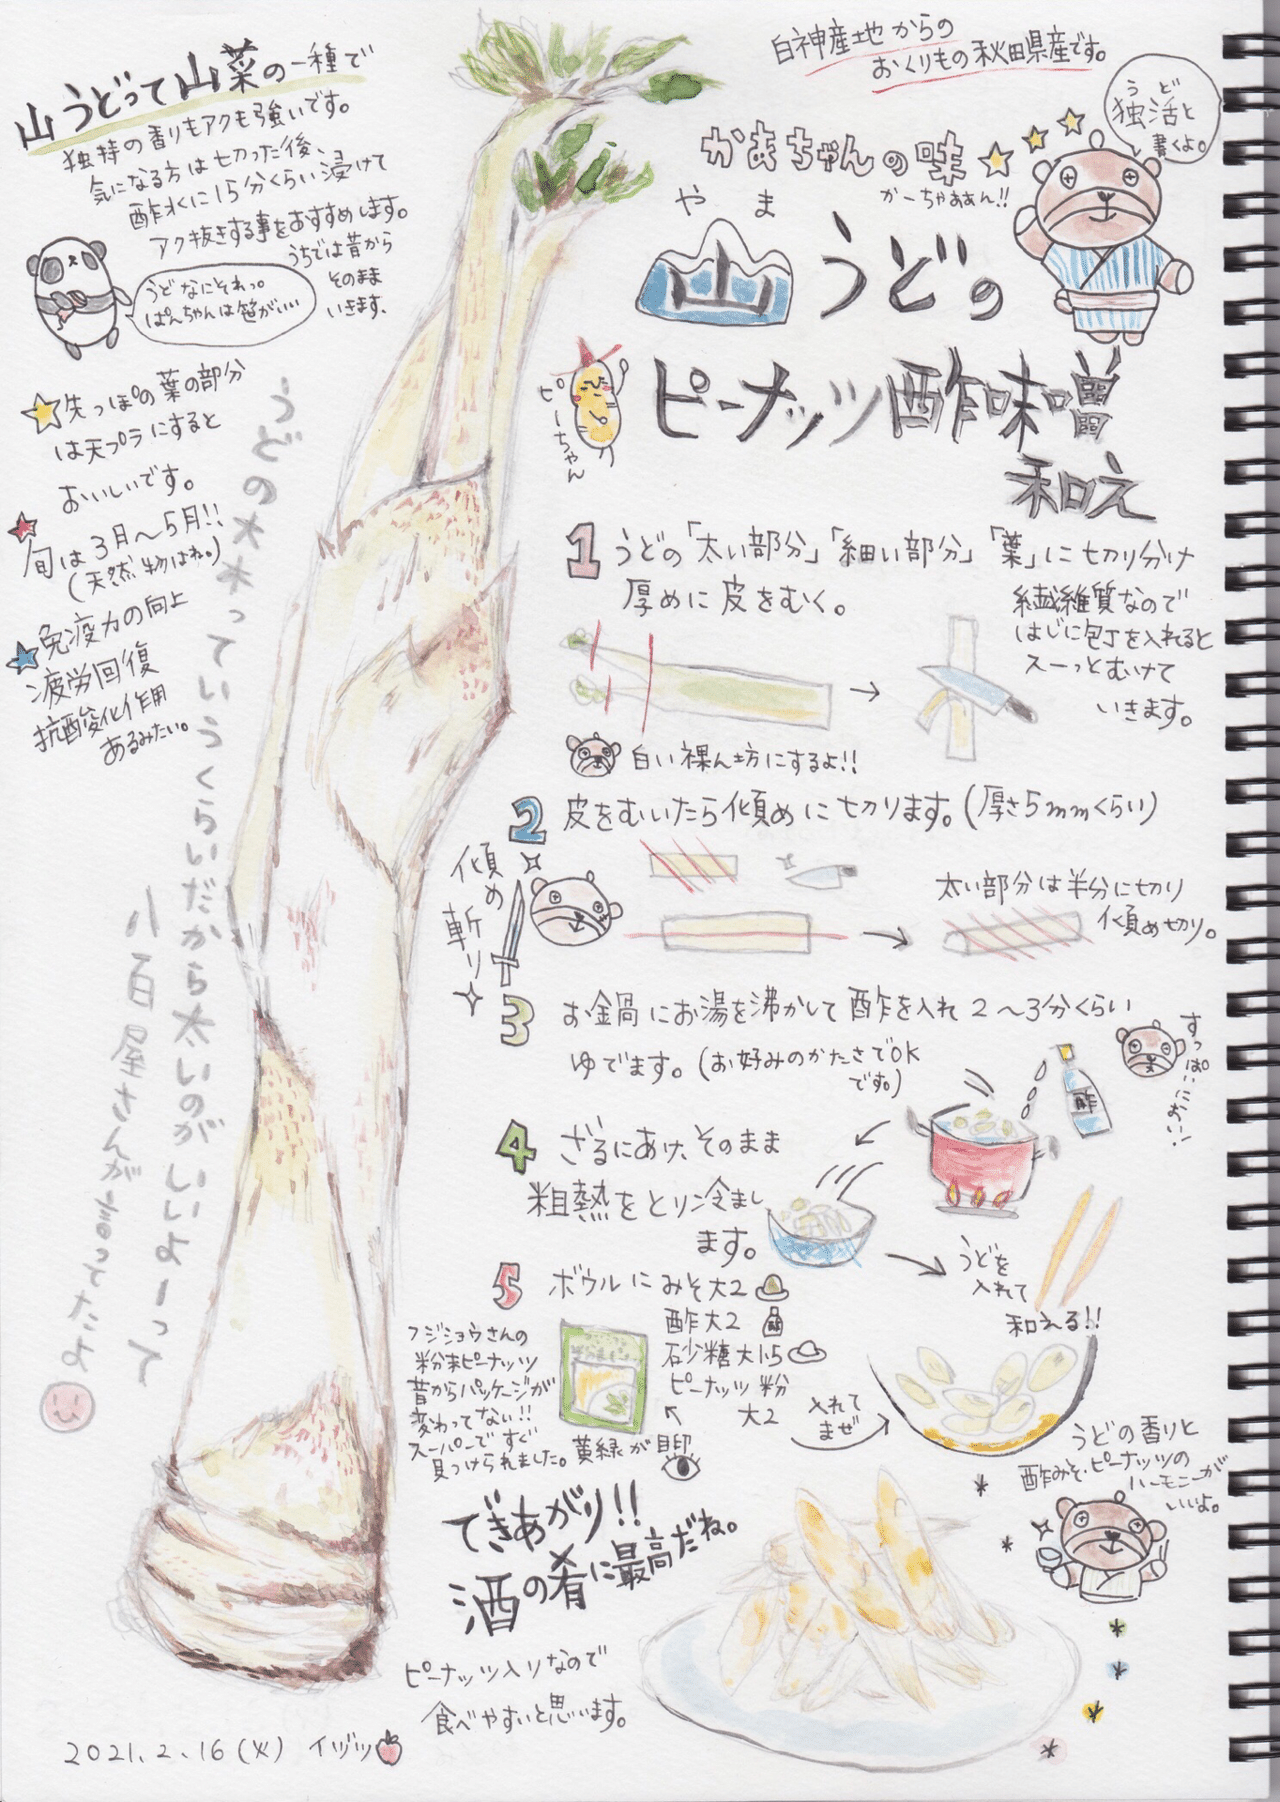 山うどって山菜の一種で
独特の香りもアクも強いです。
気になる方は切った後、
酢水に15分くらい浸けて
アク抜きする事をおすすめします。
うちでは昔から
そのまま
いきます。
うどなにそれっ。
ぱんちゃんは笹がいい
先っぽの葉の部分
は天プラにすると
おいしいです。
旬は3月〜5月!!
(天然物はね。)
免疫力の向上
疲労回復
抗酸化作用
あるみたい。
うどの大木っていうくらいだから太いのがいいよーって
八百屋さんが言ってたよ
白神産地からの
おくりもの秋田県産です。
うど
独活と
書くよ。
かあちゃんの味
かーちゃぁぁん!!
やま
山うどの
ピーちゃん
ピーナッツ酢味噌
和え
1 うどの「太い部分」「細い部分」「葉」に切り分け
厚めに皮をむく。
繊維質なので
はじに包丁を入れると
スーっとむけて
いきます。
白い裸ん坊にするよ!!
2 皮をむいたら傾めに切ります。(厚さ5mmくらい)
傾め斬り
太い部分は半分に切り
傾め切り。
3 お鍋にお湯を沸かして酢を入れ2〜3分くらい
ゆでます。(お好みのかたさでOK
です。)
酢
すっぱいにおい!
4 ざるにあけ、そのまま
粗熱をとり冷まし
ます。
うどを
入れて
和える!!
5 ボウルにみそ大2
酢大2
砂糖大1.5
ピーナッツ粉
大2
入れて
まぜ
フジショウさんの
粉末ピーナッツ
昔からパッケージが
変わってない!!
スーパーですぐ
見つけられました。
黄緑が目印
うどの香りと
酢みそ・ピーナッツの
ハーモニーが
いいよ。
できあがり!!
酒の肴に最高だね。
ピーナッツ入りなので
食べやすいと思います。
2021.2.16(火) イヅツ